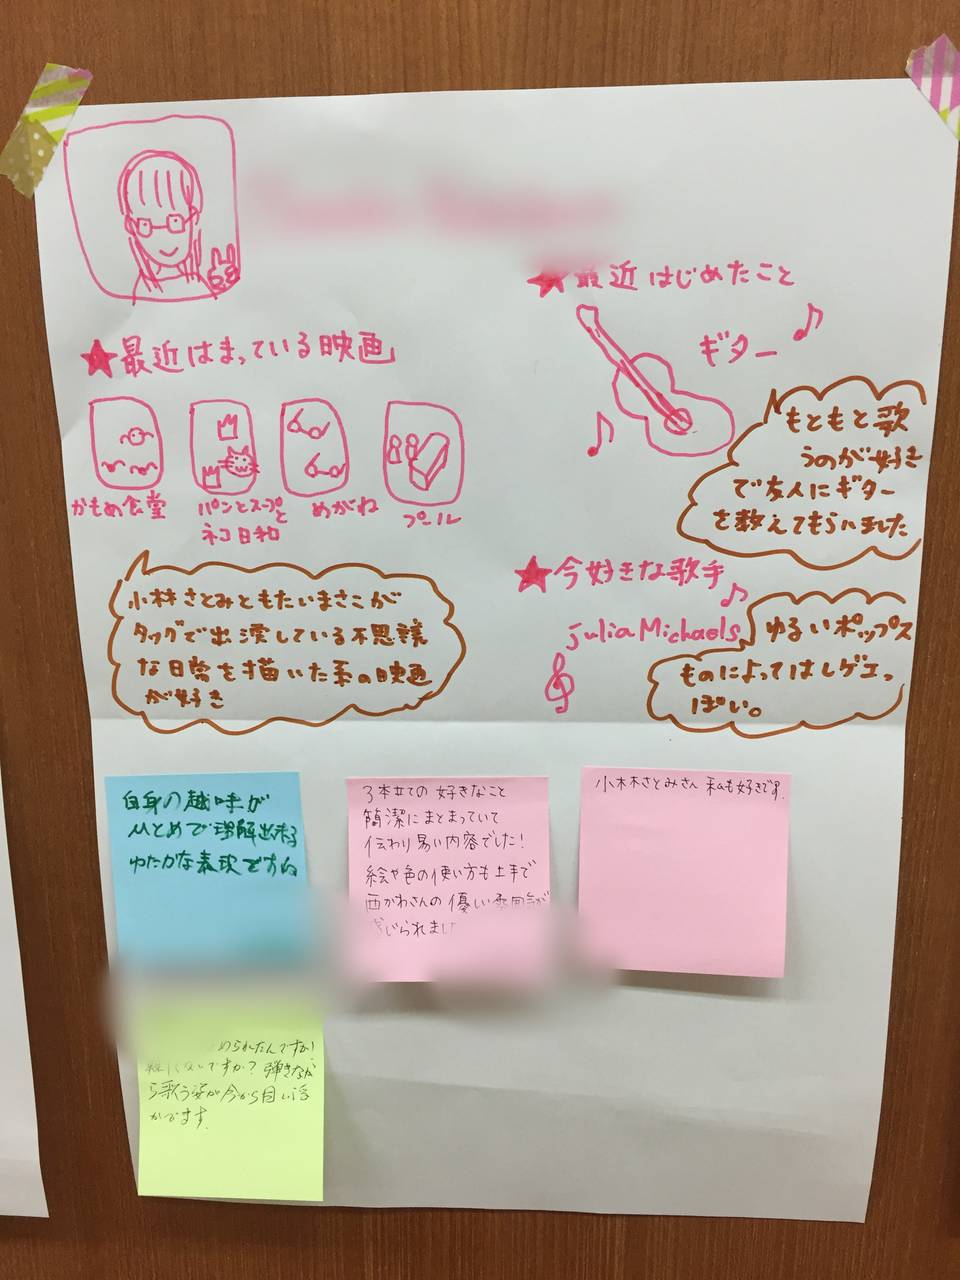 ★最近はまっている映画
かもめ食堂
パンとスープと
ネコ日和
めがね
プール
小林さとみともたいまさこが
タッグで出演している不思議
な日常を描いた系の映画
が好き
★最近はじめたこと
ギター
もともと歌
うのが好き
で友人にギター
を教えてもらいました
★今好きな歌手
Julia Michaels
ゆるいポップス
ものによってはレゲエっ
ぽい。
自身の趣味が
ひとめで理解出来る
ゆたかな表現ですね
3本立ての好きなこと
簡潔にまとまっていて
伝わり易い内容でした!
絵や色の使い方も上手で
西かわさんの優しい雰囲気が
じられまし
小林さとみさん 私も好きです。
められたんですか!
ですか? 弾きなが
ら歌う姿が今から目に浮
かびます。